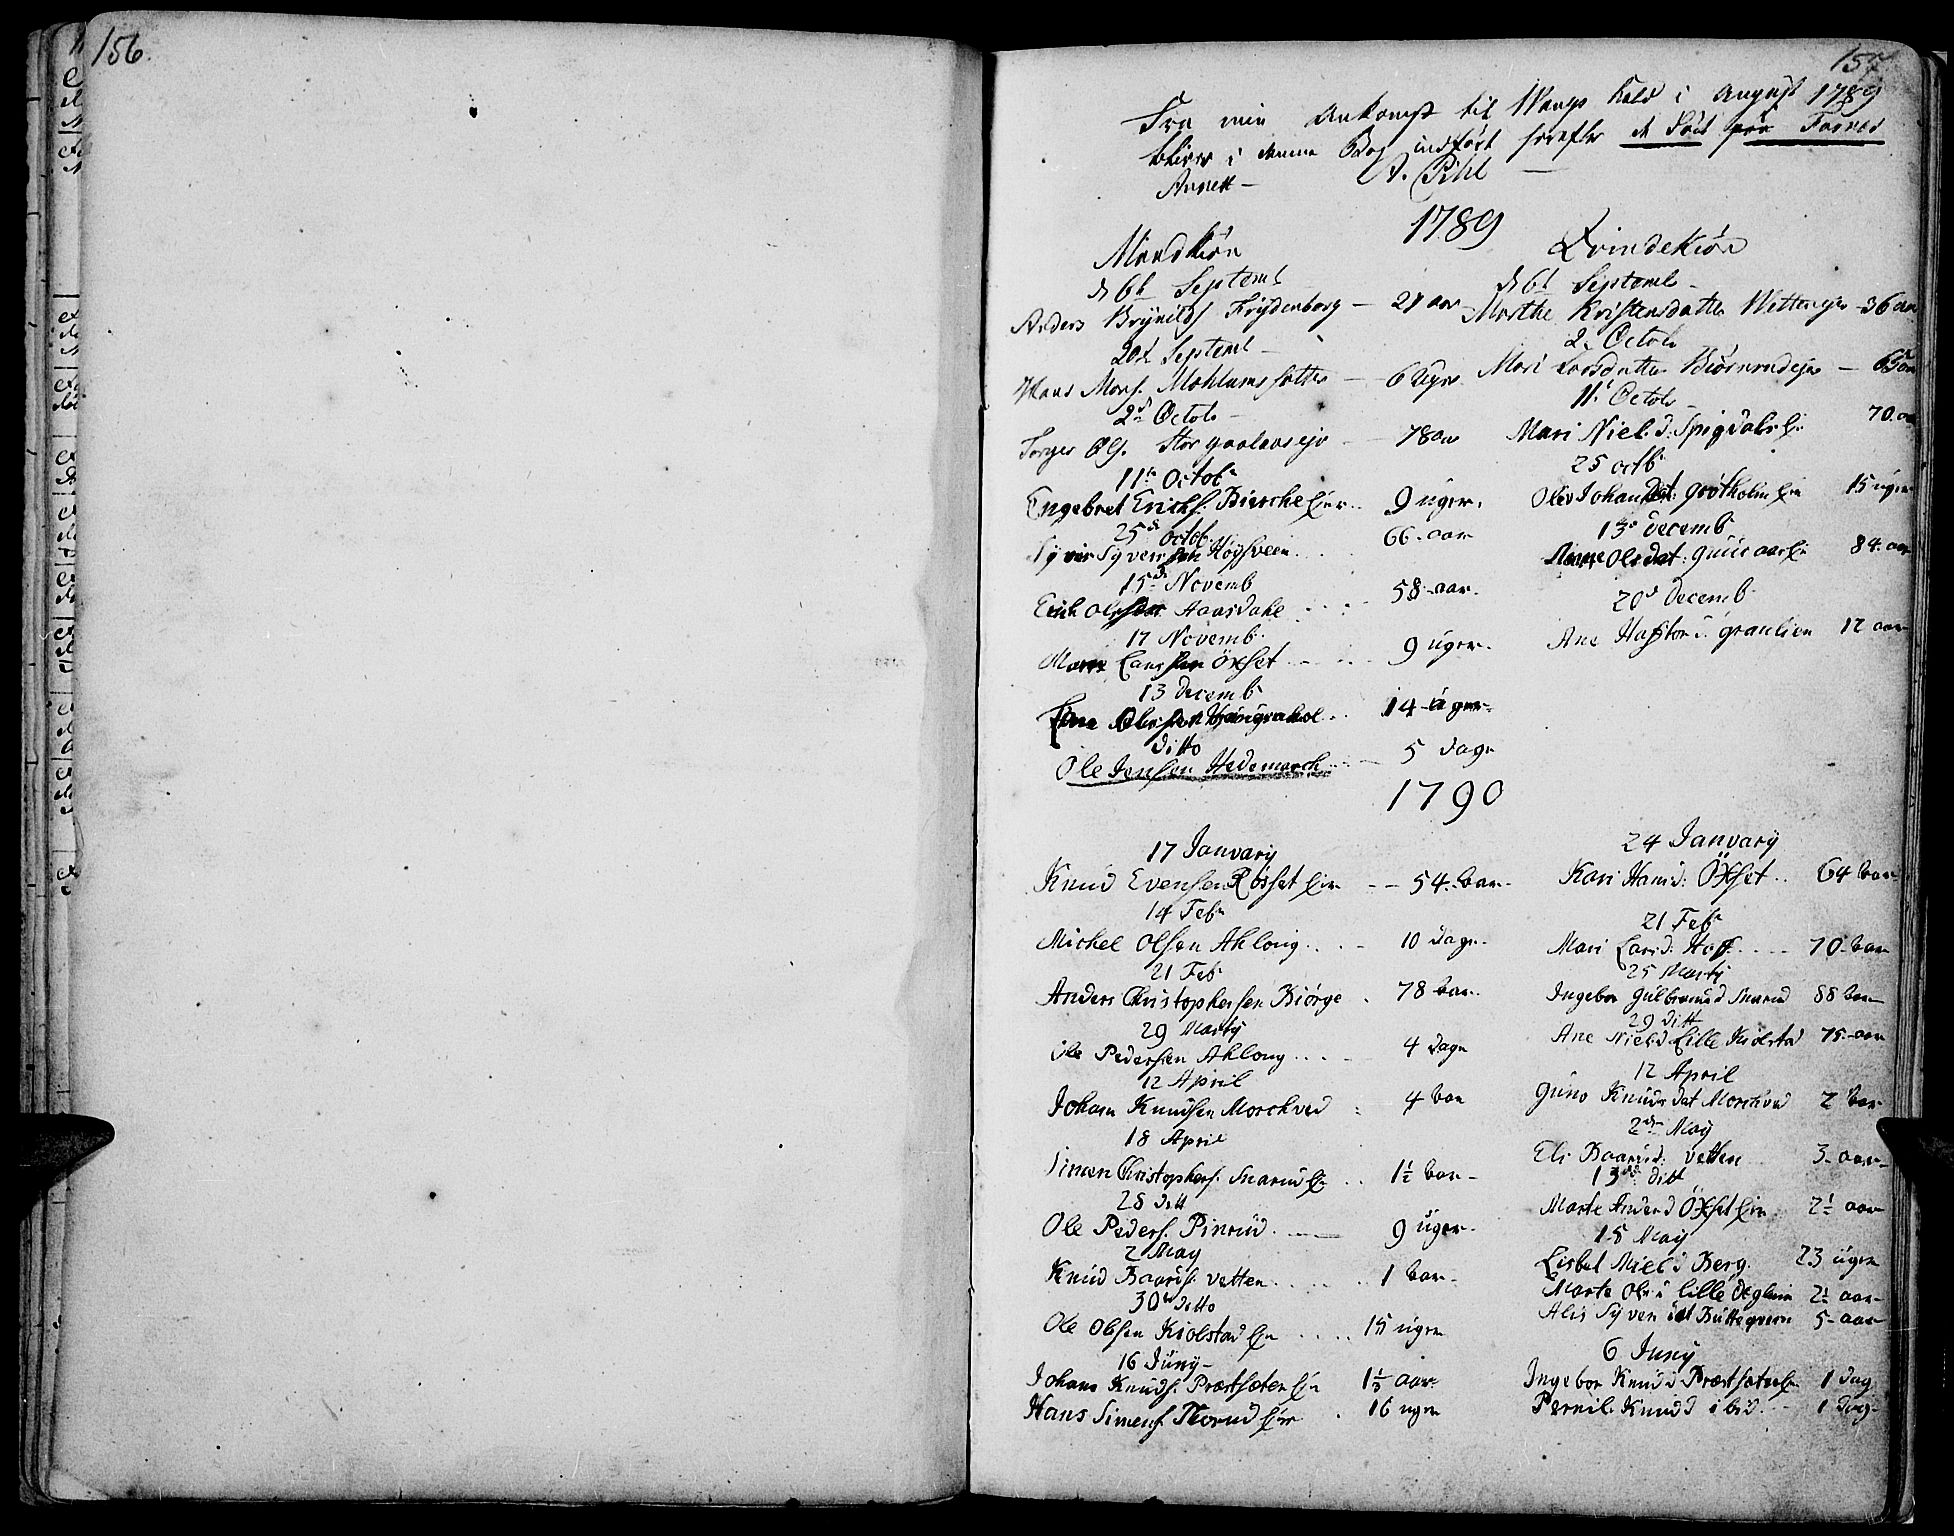 156.
157
Fra min Ankomst til Wangs Kald i August 1789
bliver i denne Bog indført herefter de Død fra Furnæs
Annex –
A. Pihl –
1789
Mandkiøn
d 6t Septembr
Anders Brynilds Frydenborg – 21 aar
20d Septembr –
Hans Mons. – 6 Uger
2d Octob –
Torger Ols. – 78 aar
11te Octobr
Engebret Erichs. Bierche Eier.. 9 uger.
25d octob.
Syver Syversen Høysveen.... 66. aar
15d Novemb
Erich Olessen Aarsdahl.... 58. aar.
17 Novemb.
Larssen Öxset..... 9 uger.
13 decemb
14 uger.
ditto
Ole Jenssen Hedemarch..... 5 dage
Qvindekiøn
d 6t Septemb –
Marthe Kristensdatter – 36 aar
2 Octob
Mari Larsdatter – 65 aar
11 Octob –
Mari Niels d: 70. aar
25 octb
Johansdat: Grøtholm Eie 15 uger
13d decemb
Olsdat: 84. aar
20d decemb
Ane i Granlien 12 aar
1790
17 January
Knud Evensen Røsset Eie – – 54. aar.
14 Febr
Michel Olssen Ahlong.... 10 dage.
21 Feb
Anders Christophersen Kiörge . 78 aar.
29 Marty
Ole Pederssen Ahlong.... 4 dage
12 April
Johan Knudsen Morchved : 4 aar
18 April
Simen Christophers. Snarud Eie .. 1½ aar –
28 ditt
Ole Peders. Pinrud. 9 uger.
2 May
Knud Baards. vetten...... 1 aar –
30te ditto
Ole Olssen Kiolstad Eie .... 15 uger
16 Juny –
Johans Knuds. Præstsæter Eie 1⅓ aar.
Hans Simens. Eie . 16 uger
24 January
Kari Hans d: Öxset.. 64 aar
21 Feb
Mari Lars d: Hoff..... 70 aar
25 Marty
Ingebor Gulbrans d Snarud 88 aar
29 ditt
Ane Niels d Lille Kiolstad 75 aar
12 April
Guno Knuds dat Morchved 2 aar
2den May
Eli Baards d: vetten 3 aar –
13de ditt
Marte Anders d Öxset Eie 2½ aar
15 May
Lisbet Niels d Berg. 23 uger
Marte Ols d Lille 2½ aar –
Alis Syvers dat Buttegveren 5 aar
6 Juny
Ingebor Knuds d Præstsæter Eie 1 dag
Pernil. Knuds d ibid. – 1 dag –